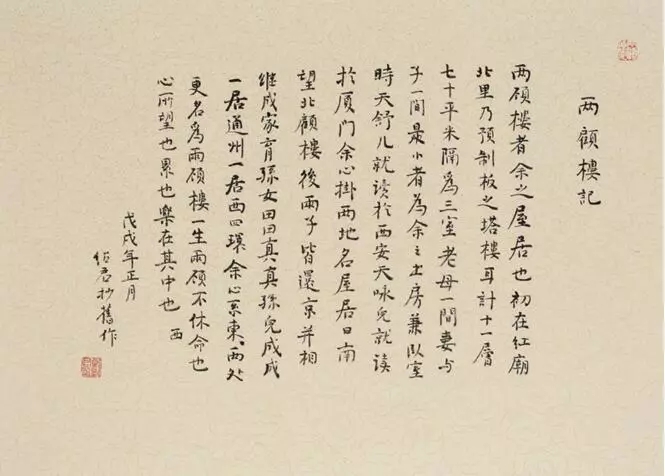 两顾樓記
两顾樓者余之屋居也初在红廟
北里乃预制板之塔樓耳計十一層
七十平米隔為三室老母一間妻与
子一間最小者為余之书房兼卧室
時天舒儿就读於西安天咏兒就读
於厦门余心掛两地名屋居曰南
望北顧樓後兩子皆還京并相
继成家育孫女田田真真孫兒成成
一居通州一居西四環余心系東西处
更名為兩顾樓一生兩顾不休命也
心所望也累也樂在其中也 西
戊戌年正月
绍君抄舊作